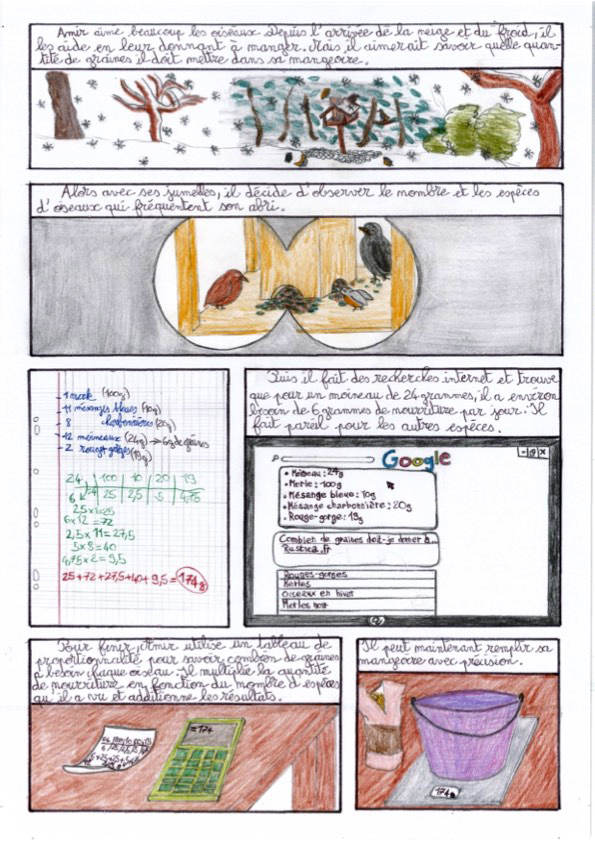 Amir aime beaucoup les oiseaux. Depuis l'arrivée de la neige et du froid, il
les aide en leur donnant à manger. Mais il aimerait savoir quelle quan-
tité de graines il doit mettre dans sa mangeoire.
Alors avec ses jumelles, il décide d'observer le nombre et les espèces
d'oiseaux qui fréquentent son abri.
1 merle (100g)
11 mésanges bleues (10g)
8 charbonnières (20g)
12 moineaux (24g) → 6g de graines
2 rouges-gorges (19g)
24 100 10 20 19
6 25 2,5 5 4,75
25x1=25
6x12=72
2,5x11=27,5
5x8=40
4,75x2=9,5
25+72+27,5+40+9,5=174g
Puis il fait des recherches internet et trouve
que pour un moineau de 24 grammes, il a environ
besoin de 6 grammes de nourriture par jour. Il
fait pareil pour les autres espèces.
Google
• Moineau: 24g
• Merle: 100g
• Mésange bleue: 10g
• Mésange charbonnière: 20g
• Rouge-gorge: 19g
Combien de graines doit-je donner à...
Rustica.fr
Rouges-gorges
Merles
Oiseaux en hiver
Merles noir
Pour finir, Amir utilise un tableau de
proportionnalité pour savoir combien de graines
a besoin chaque oiseau. Il multiplie la quantité
de nourriture en fonction du nombre d'espèces
qu'il a vu et additionne les résultats.
=174
Il peut maintenant remplir sa
mangeoire avec précision.
174g